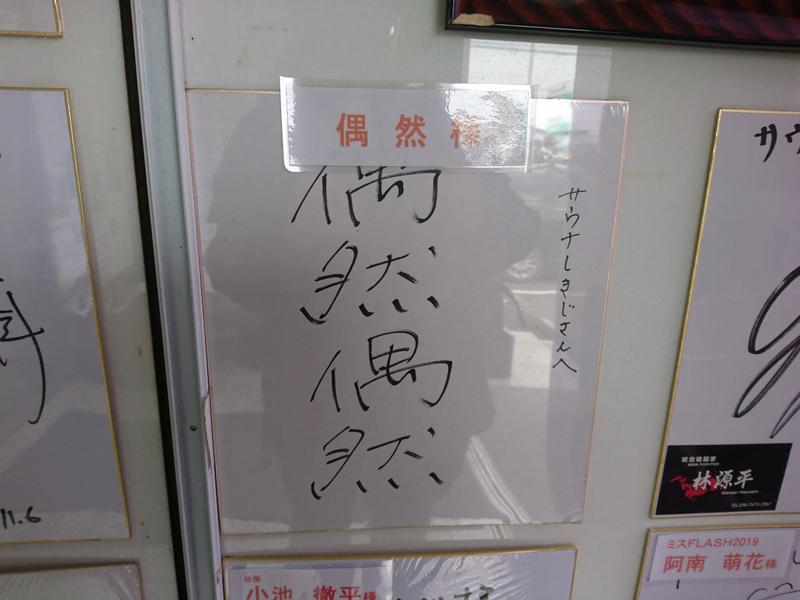 偶然様
偶然偶然
サウナしきじさんへ
サウ
11.6
総合格闘家
MMA FIGHTER
林源平
Genpei Hayashi
俳優
小池 徹平様
ミスFLASH2019
阿南 萌花様